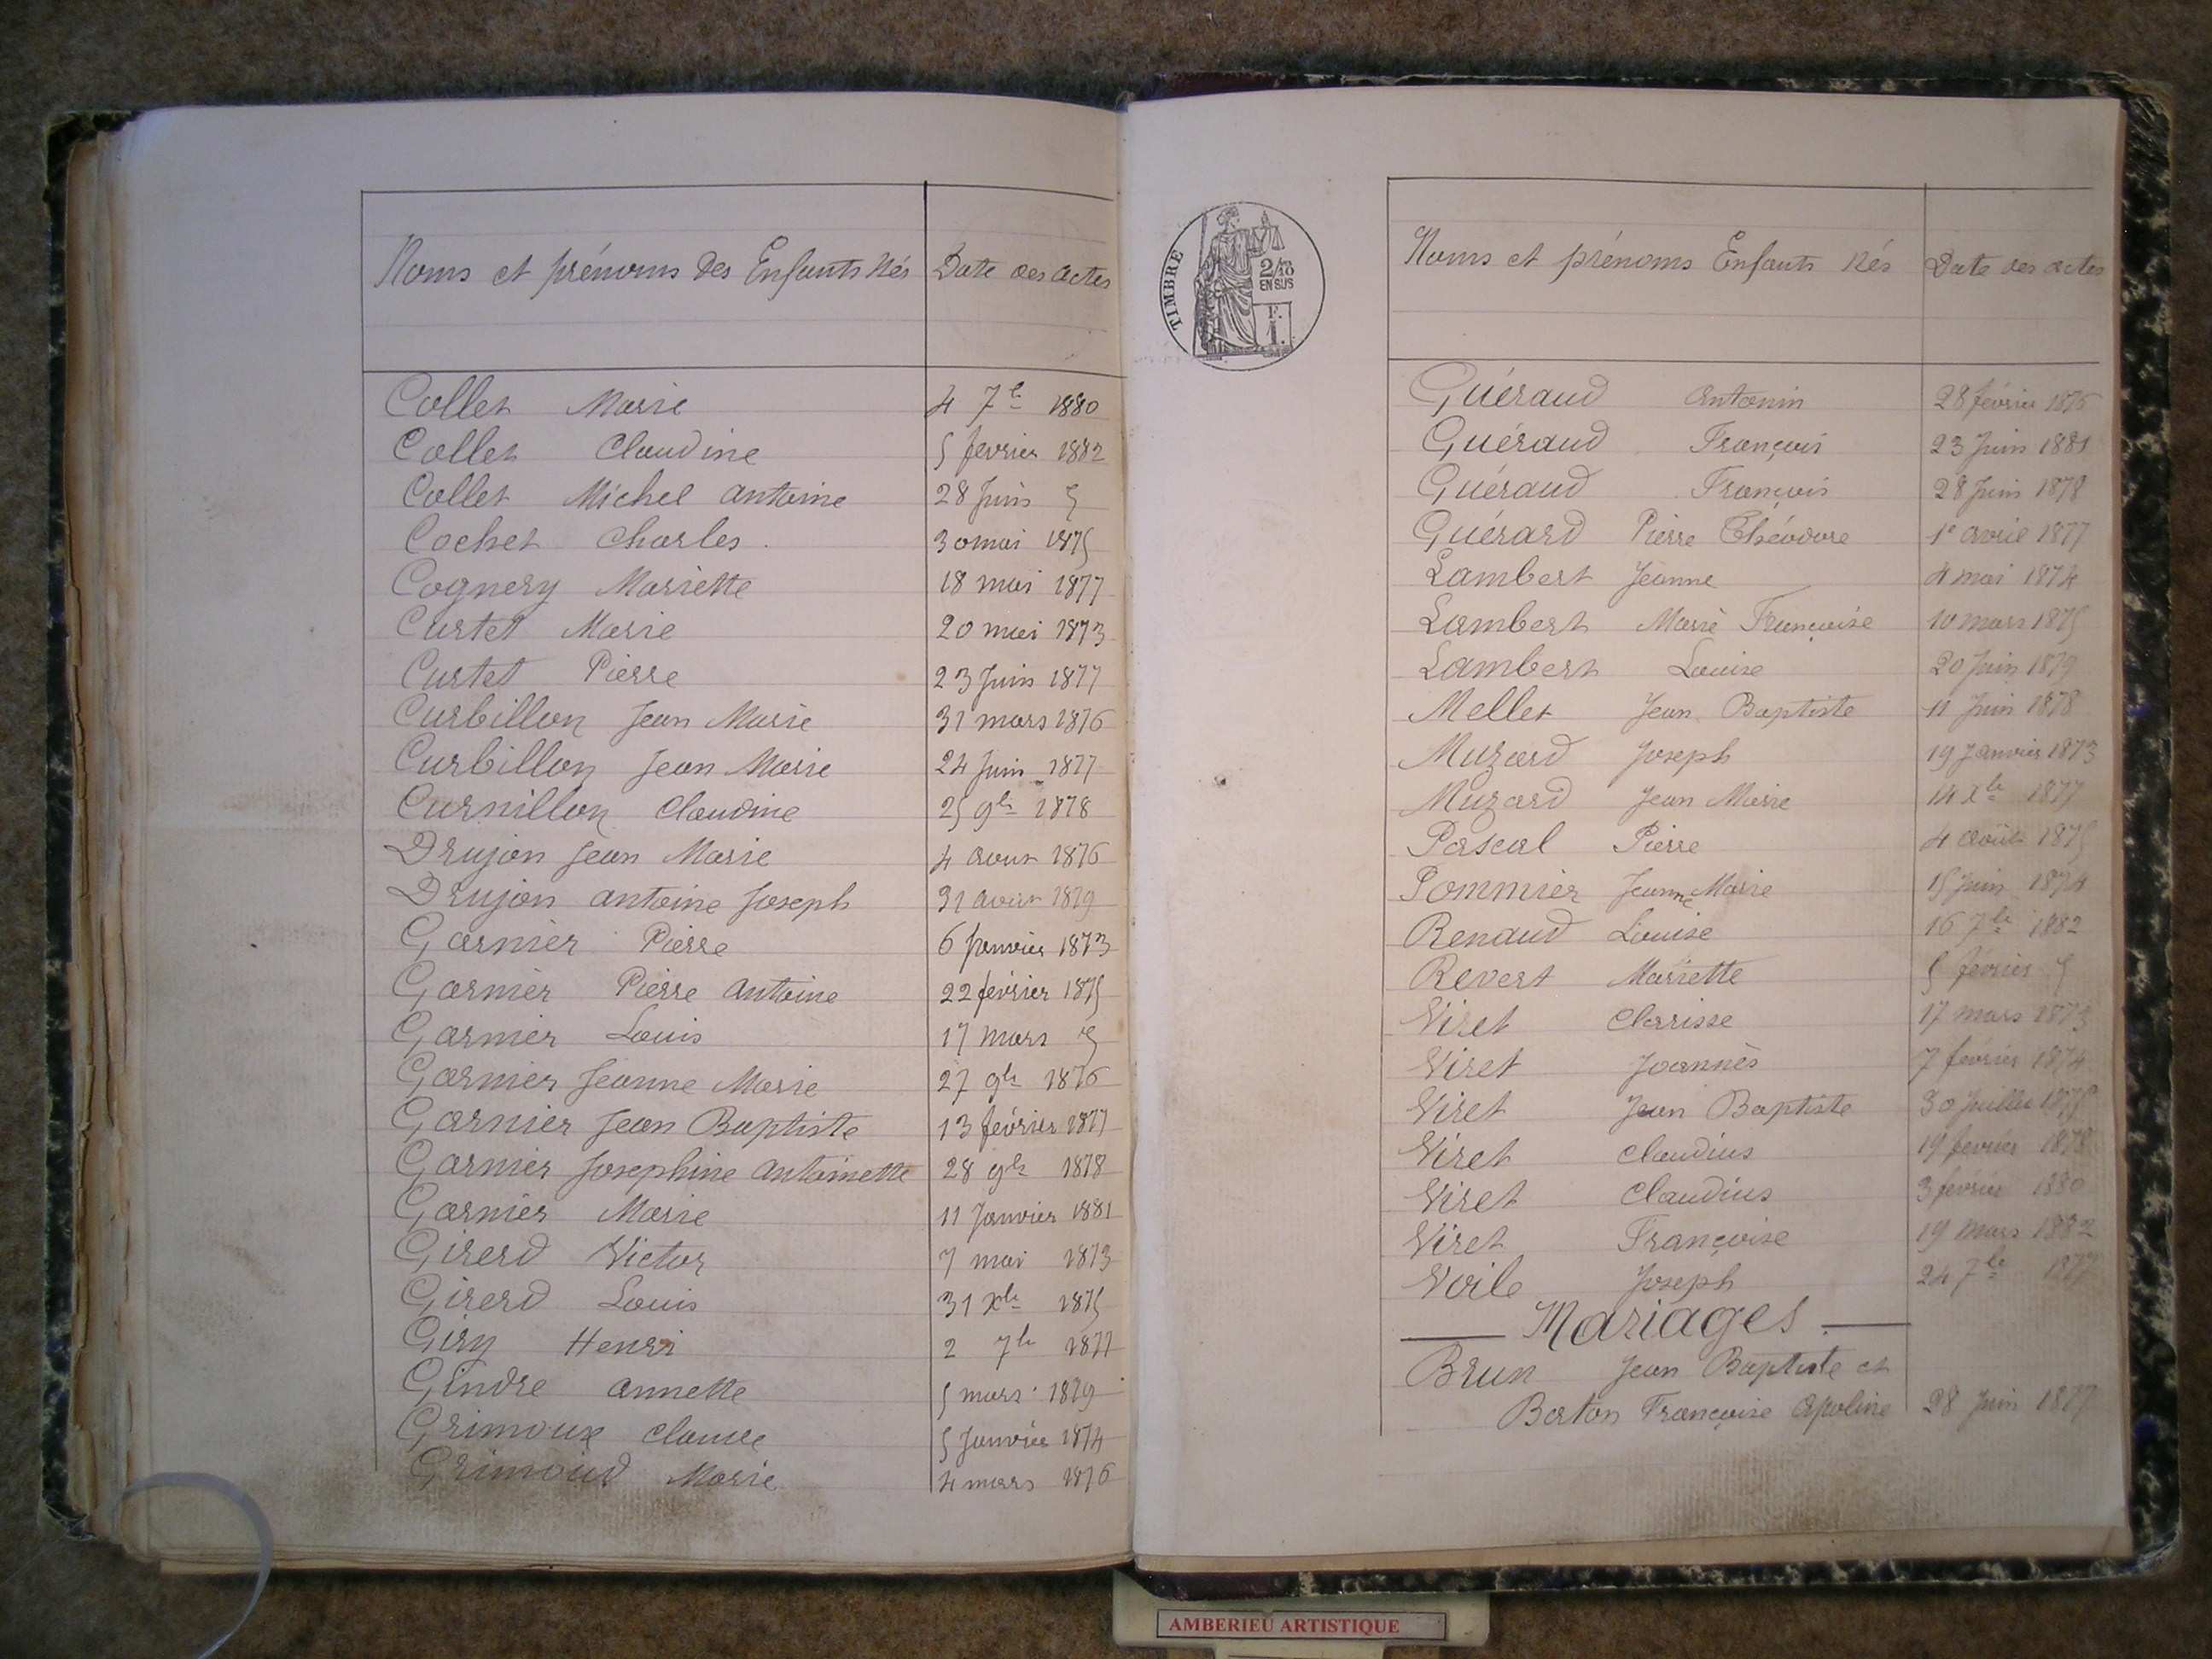 Noms et prénoms des Enfants Nés Date des actes
Collet Marie 4 7be 1880
Collet Claudine 5 fevrier 1882
Collet Michel antoine 28 Juin
Cochet Charles 30 mai 1875
Cognery Mariette 18 mai 1877
Curtet Marie 20 mai 1873
Curtet Pierre 23 Juin 1877
Curbillon Jean Marie 31 mars 1876
Curbillon Jean Marie 24 Juin 1877
Curnillon Claudine 25 9be 1878
Drujon Jean Marie 4 aout 1876
Drujon antoine Joseph 31 aout 1879
Garnier Pierre 6 Janvier 1873
Garnier Pierre antoine 22 février 1875
Garnier Louis 17 mars
Garnier Jeanne Marie 27 9be 1876
Garnier Jean Baptiste 13 février 1877
Garnier Josephine antoinette 28 9be 1878
Garnier Marie 11 Janvier 1881
Girerd Victor 7 mai 1873
Girerd Louis 31 Xbe 1875
Giry Henri 2 7be 1877
Gindre annette 5 mars 1879
Grimoux Claude 5 Janvier 1874
Grimoud Marie 4 mars 1876
TIMBRE
2/10
EN SUS
F.
1.
Noms et prénoms Enfants Nés Date des actes
Guéraud Antonin 28 février 1876
Guéraud François 23 Juin 1881
Guéraud François 28 Juin 1878
Guérard Pierre Théodore 1e avril 1877
Lambert Jeanne 4 mai 1874
Lambert Marie Françoise 10 mars 1875
Lambert Louise 20 Juin 1879
Mellet Jean Baptiste 11 Juin 1878
Muzard Joseph 19 Janvier 1873
Muzard Jean Marie 14 Xbe 1877
Pascal Pierre 4 août 1875
Pommier Jeanne Marie 15 Juin 1874
Renaud Louise 16 7be 1882
Revert Mariette 5 février
Viret Clarisse 17 mars 1873
Viret Joannès 7 février 1874
Viret Jean Baptiste 30 Juillet 1875
Viret Claudius 19 février 1878
Viret Claudius 3 février 1880
Viret Françoise 19 mars 1882
Voile Joseph 24 7be 1877
Mariages
Brun Jean Baptiste et
Barton Françoise Apoline 28 Juin 1877
AMBERIEU ARTISTIQUE